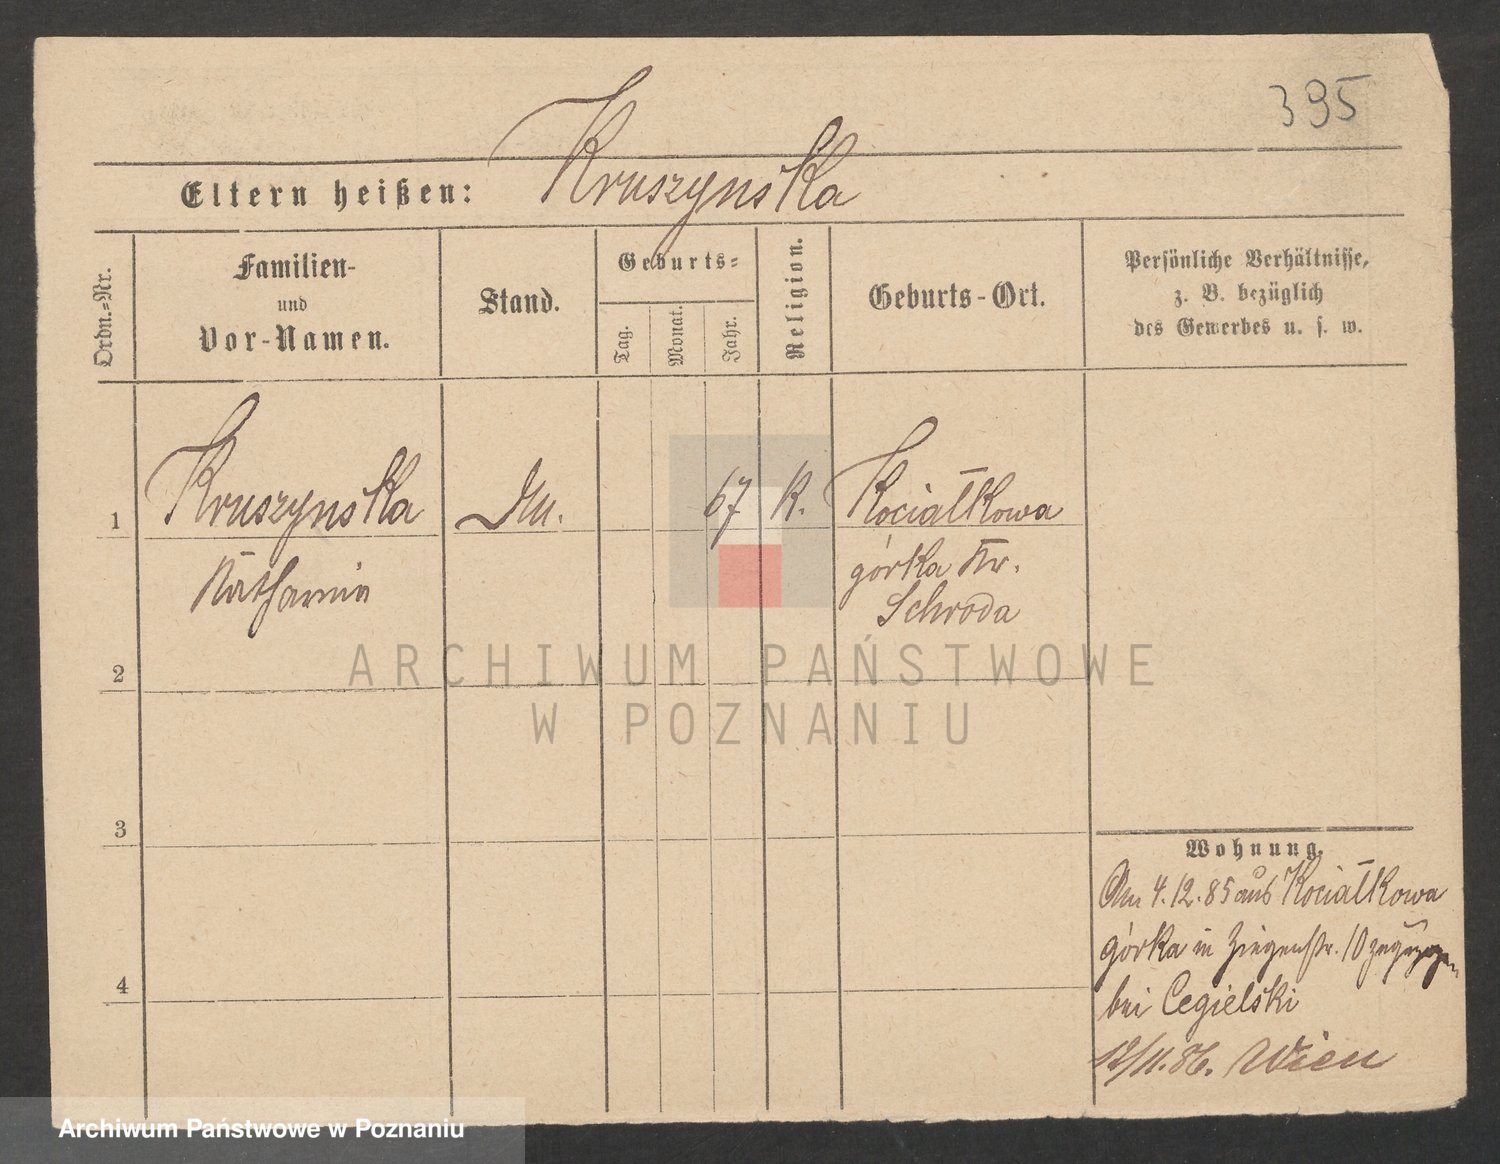 395
Kruszynska
Eltern heißen:
Ordn.-Nr.
Familien-
und
Vor-Namen.
Stand.
Geburts-
Tag.
Monat.
Jahr.
Religion.
Geburts-Ort.
Persönliche Verhältnisse,
z. B. bezüglich
des Gewerbes u. s. w.
1 Kruszynska 67 K. Kociałkowa
Katharina górka Kr.
Schroda
2
3
4
ARCHIWUM PAŃSTWOWE
W POZNANIU
Wohnung.
Am 4.12.85 aus Kociałkowa
górka in Ziegenstr. 10 zugezogen
bei Cegielski
12/11.86. Wien
Archiwum Państwowe w Poznaniu